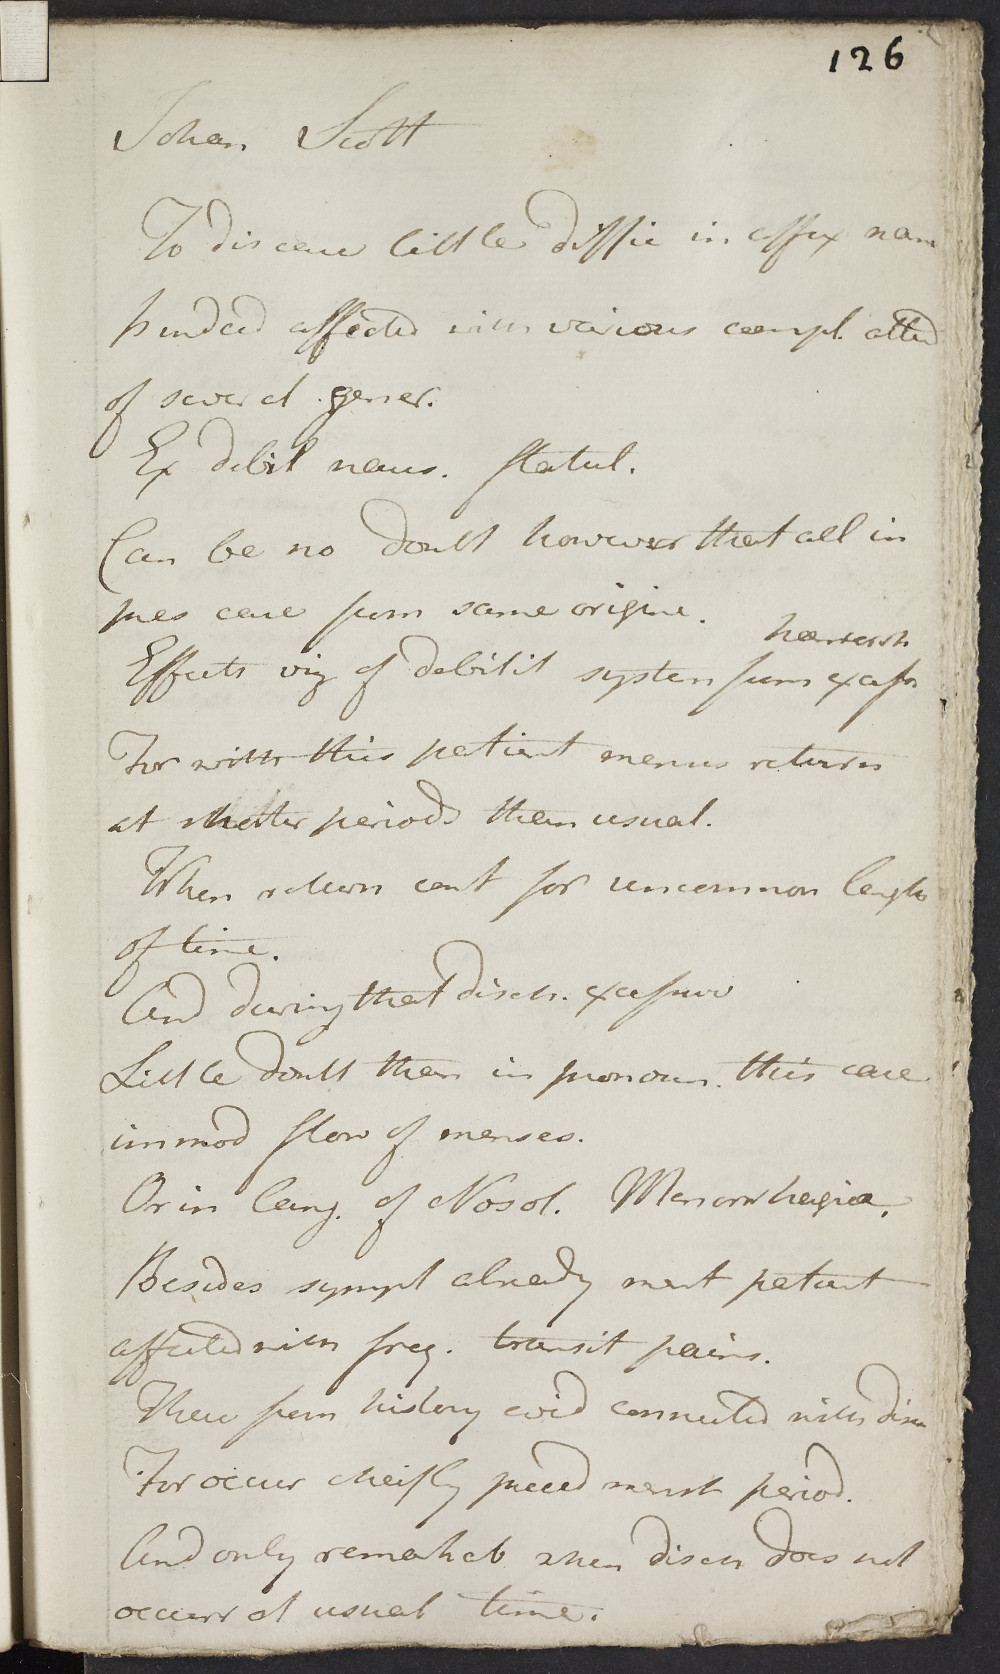 126
Johan Scott
To disease little diffic in affix name
Indeed affected with various compl. attend
of several gener.
Ex debil naus. flatul.
Can be no doubt however that all in
pres case from same origine.
hæmorrh
Effects viz of debilit system from excess
For with this patient menses returns
at shorter periods than usual.
When return cont for uncommon length
of time.
And during that disch. excessive
Little doubt then in pronoun. this case
immod flow of menses.
Or in lang. of Nosol. Menorrhagia.
Besides sympt already ment patient
affected with freq. transit pains.
These from history evid connected with disea
For occur cheifly preced menst period.
And only remarkab when disch does not
occurr at usual time.